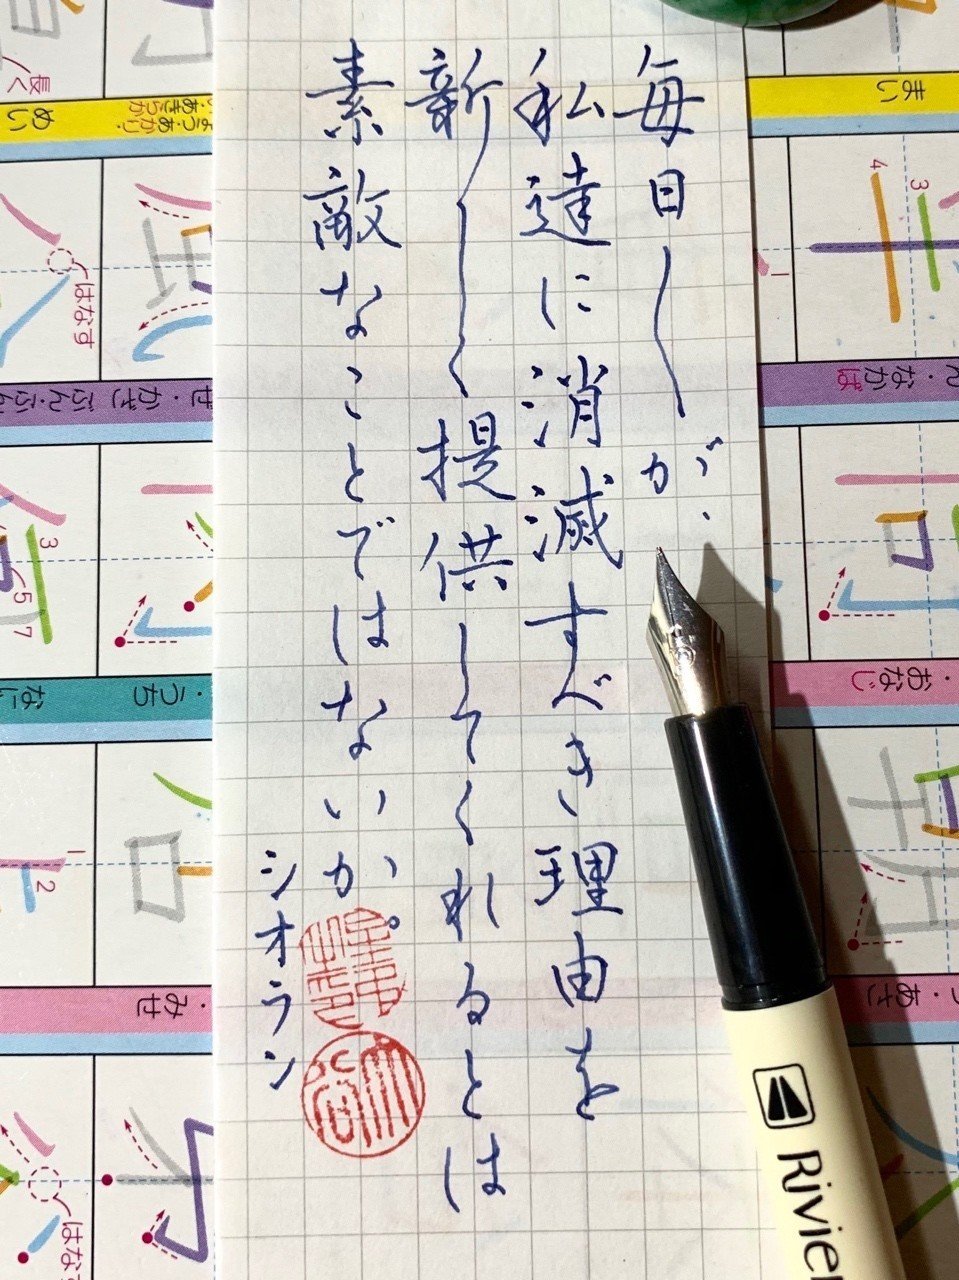 毎日〱が、
私達に消滅すべき理由を
新しく提供してくれるとは
素敵なことではないか。
シオラン
Rivie
まい
ん・なか
ば
・おなじ
・あさ
4
3
1
長く
めい
はなす
せ・かぎ
ぶん・ぶん
3
5
7
・うち
なに
1
2
・みせ
はなす